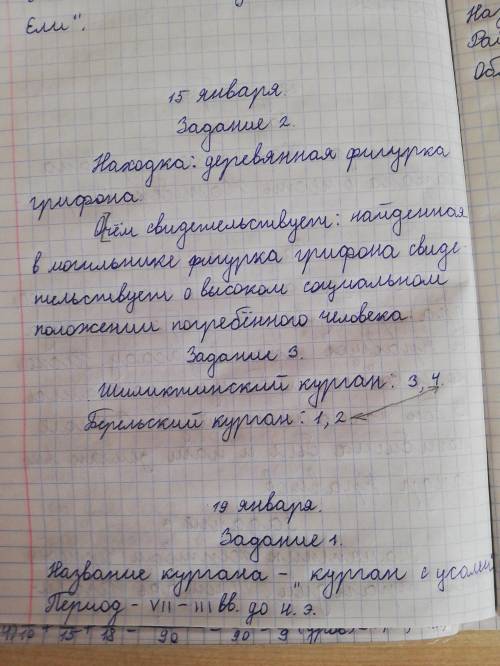 Ели".
15 января.
Задание 2.
Находка: деревянная фигурка
грифона.
О чём свидетельствует: найденная
в могильнике фигурка грифона свиде-
тельствует о высоком социальном
положении погребённого человека.
Задание 3.
Шиликтинский курган: 3, 4.
Берельский курган: 1, 2
19 января.
Задание 1.
Название кургана - "курган с усами
Период - VII - III вв. до н. э.
Наз
Об